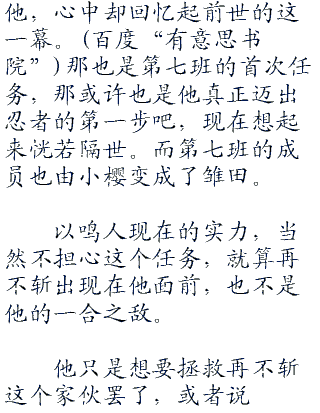 他，心中却回忆起前世的这
一幕。(百度“有意思书
院”)那也是第七班的首次任
务，那或许也是他真正迈出
忍者的第一步吧，现在想起
来恍若隔世。而第七班的成
员也由小樱变成了雏田。
以鸣人现在的实力，当
然不担心这个任务，就算再
不斩出现在他面前，也不是
他的一合之敌。
他只是想要拯救再不斩
这个家伙罢了，或者说